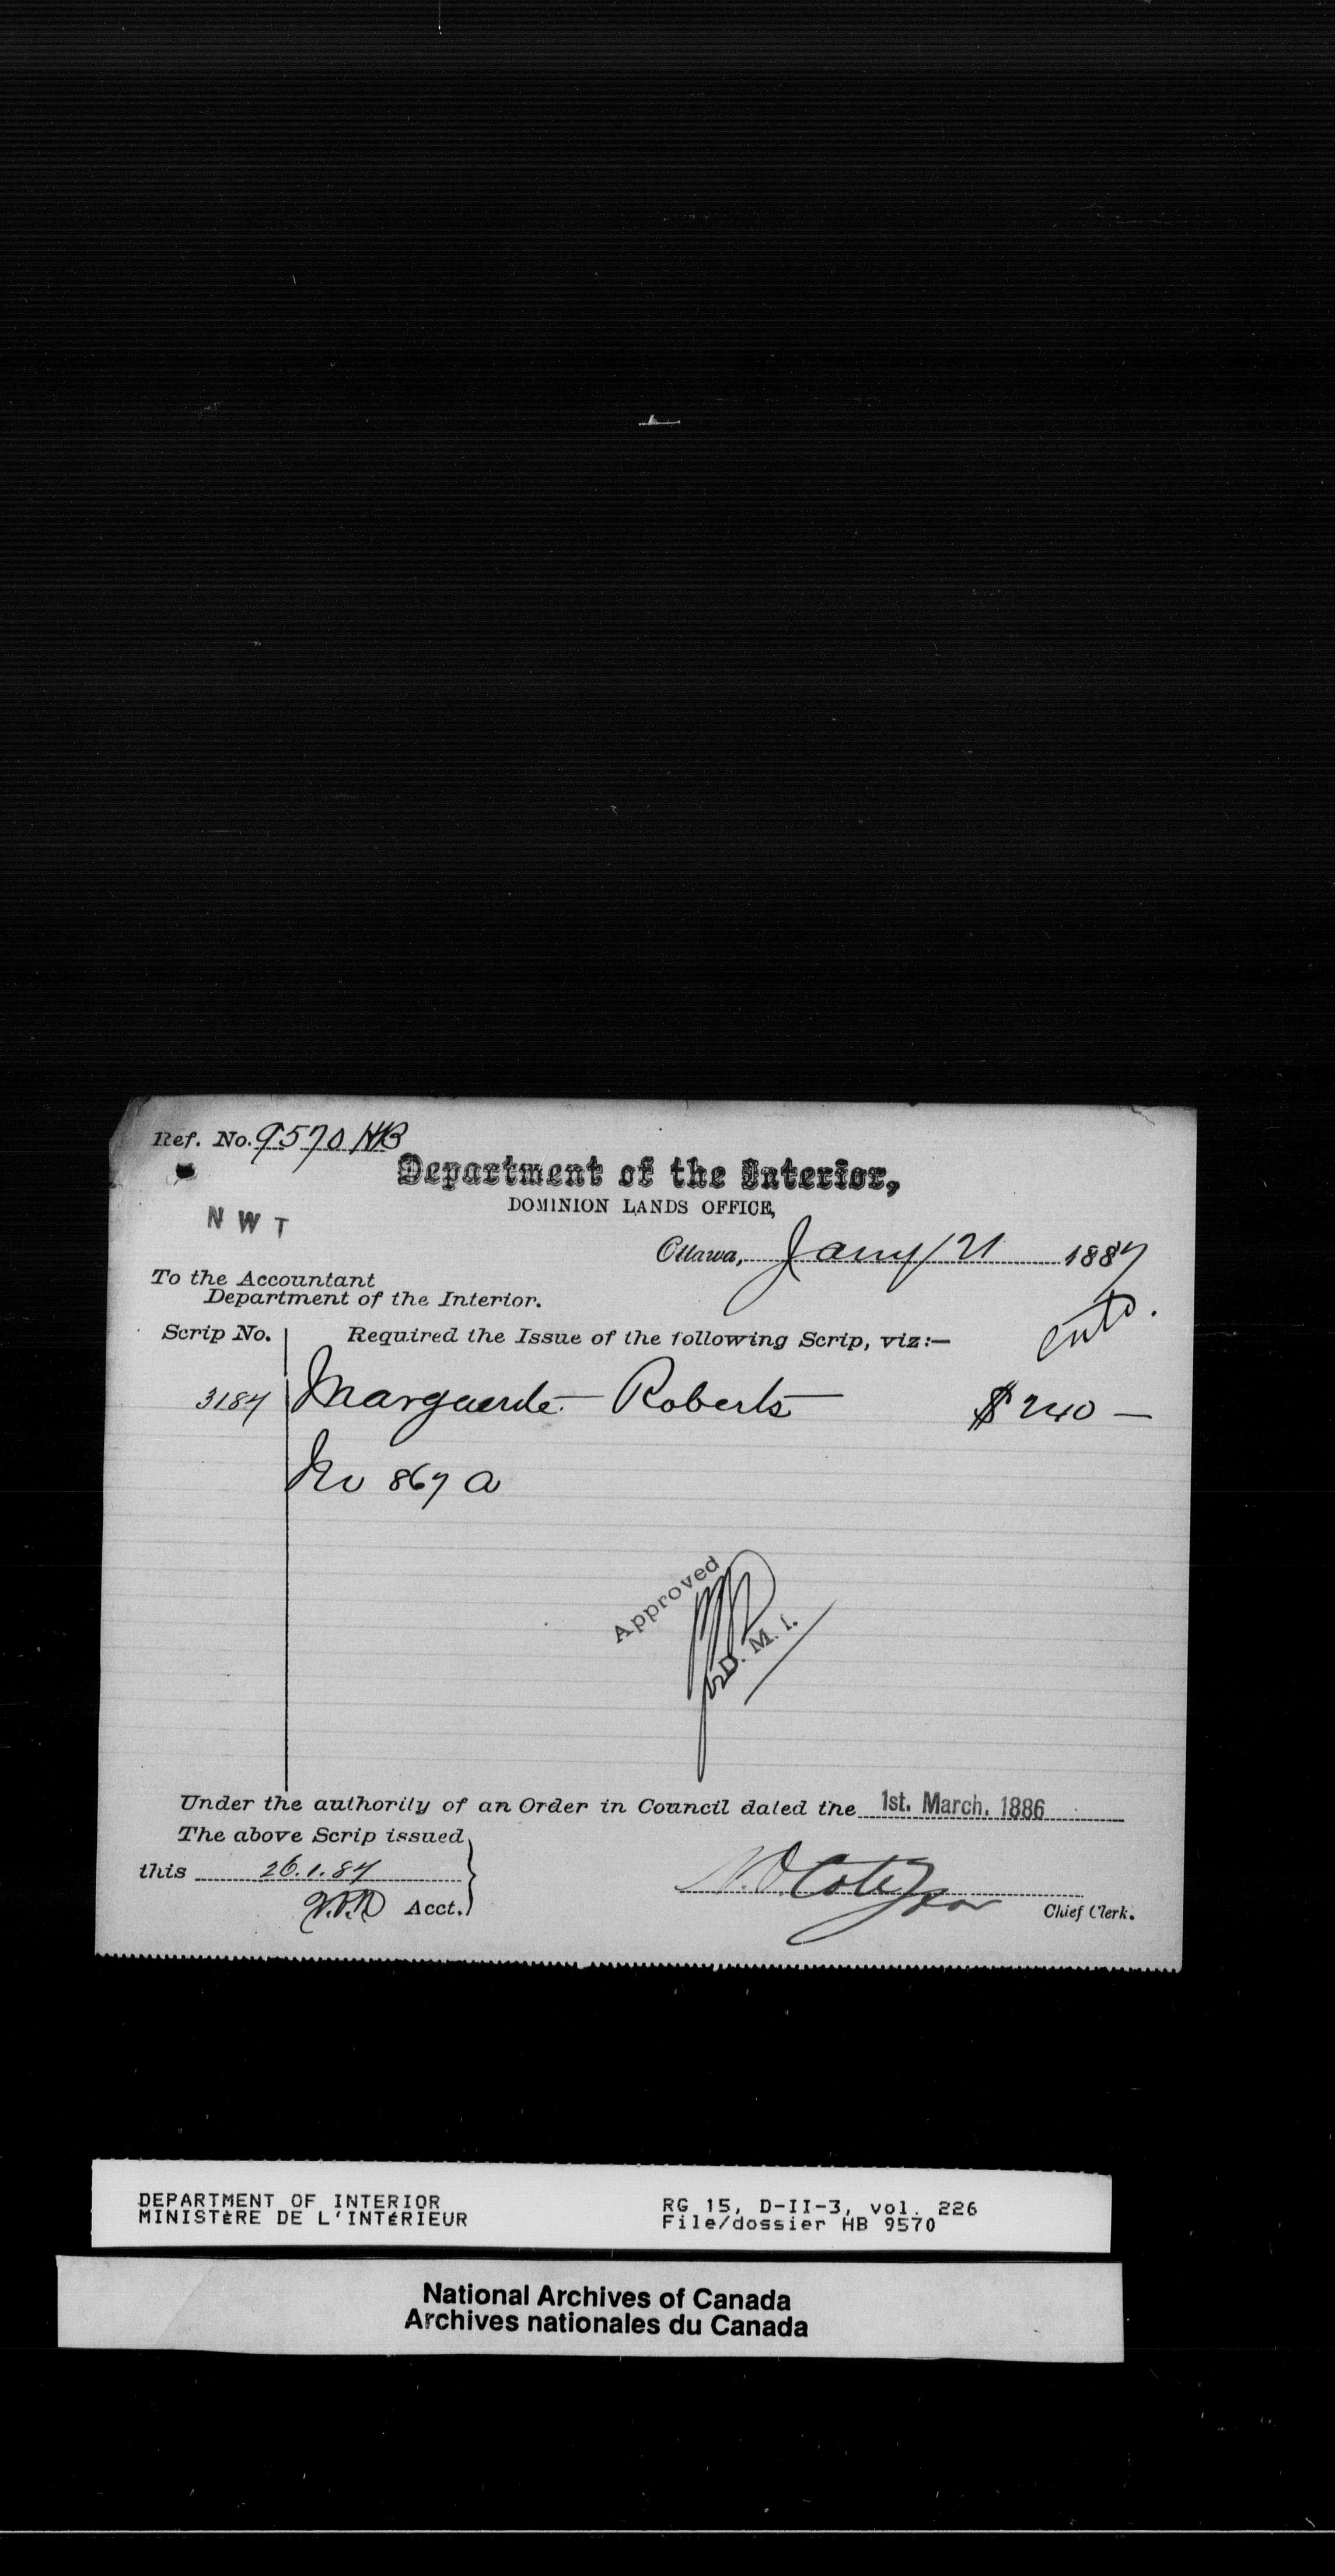 Ref. No. 9570 HB
Department of the Interior,
DOMINION LANDS OFFICE,
N W T
Ottawa, Jany 21 1887
To the Accountant
Department of the Interior.
entd.
Scrip No. Required the Issue of the following Scrip, viz:—
3187 Marguerite Roberts $240 —
No 867 a
Approved
D. M. I.
Under the authority of an Order in Council dated the 1st. March. 1886
The above Scrip issued
this 26.1.87
Acct.
N.O. Coté
Chief Clerk.
DEPARTMENT OF INTERIOR
MINISTÈRE DE L'INTÉRIEUR
RG 15, D-II-3, vol. 226
File/dossier HB 9570
National Archives of Canada
Archives nationales du Canada